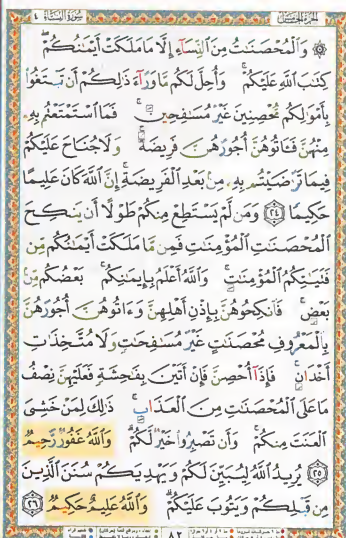 الجزء الخامس سورة النساء ٤
۞ وَالْمُحْصَنَاتُ مِنَ النِّسَاءِ إِلَّا مَا مَلَكَتْ أَيْمَانُكُمْ
كِتَابَ اللَّهِ عَلَيْكُمْ وَأُحِلَّ لَكُم مَّا وَرَاءَ ذَٰلِكُمْ أَن تَبْتَغُوا
بِأَمْوَالِكُم مُّحْصِنِينَ غَيْرَ مُسَافِحِينَ فَمَا اسْتَمْتَعْتُم بِهِ
مِنْهُنَّ فَآتُوهُنَّ أُجُورَهُنَّ فَرِيضَةً وَلَا جُنَاحَ عَلَيْكُمْ
فِيمَا تَرَاضَيْتُم بِهِ مِن بَعْدِ الْفَرِيضَةِ إِنَّ اللَّهَ كَانَ عَلِيمًا
حَكِيمًا ٢٤ وَمَن لَّمْ يَسْتَطِعْ مِنكُمْ طَوْلًا أَن يَنكِحَ
الْمُحْصَنَاتِ الْمُؤْمِنَاتِ فَمِن مَّا مَلَكَتْ أَيْمَانُكُم مِّن
فَتَيَاتِكُمُ الْمُؤْمِنَاتِ وَاللَّهُ أَعْلَمُ بِإِيمَانِكُم بَعْضُكُم مِّن
بَعْضٍ فَانكِحُوهُنَّ بِإِذْنِ أَهْلِهِنَّ وَآتُوهُنَّ أُجُورَهُنَّ
بِالْمَعْرُوفِ مُحْصَنَاتٍ غَيْرَ مُسَافِحَاتٍ وَلَا مُتَّخِذَاتِ
أَخْدَانٍ فَإِذَا أُحْصِنَّ فَإِنْ أَتَيْنَ بِفَاحِشَةٍ فَعَلَيْهِنَّ نِصْفُ
مَا عَلَى الْمُحْصَنَاتِ مِنَ الْعَذَابِ ذَٰلِكَ لِمَنْ خَشِيَ
الْعَنَتَ مِنكُمْ وَأَن تَصْبِرُوا خَيْرٌ لَّكُمْ وَاللَّهُ غَفُورٌ رَّحِيمٌ
٢٥ يُرِيدُ اللَّهُ لِيُبَيِّنَ لَكُمْ وَيَهْدِيَكُمْ سُنَنَ الَّذِينَ
مِن قَبْلِكُمْ وَيَتُوبَ عَلَيْكُمْ وَاللَّهُ عَلِيمٌ حَكِيمٌ ٢٦
٨٢